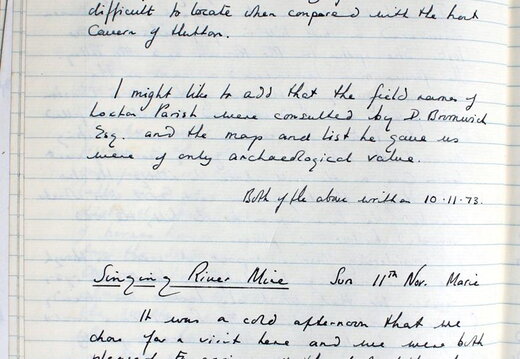 difficult to locate when compared with the lost
Cavern of Hutton.
I might like to add that the field names of
Loxton Parish were consulted by D. Bromwich
Esq. and the map and list he gave us
were of only archaeological value.
Both of the above written 10.11.73.
Singing River Mine Sun 11th Nov. Marie
It was a cold afternoon that we
chose for a visit here and we were both
pleased to